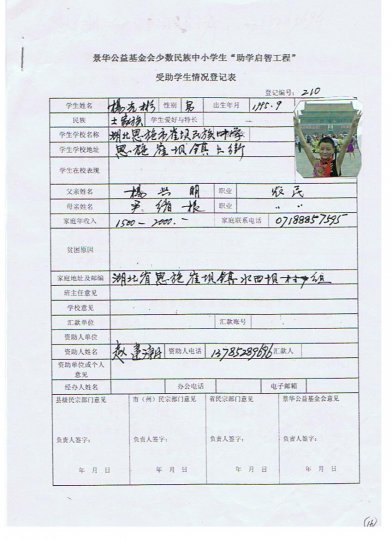 景华公益基金会少数民族中小学生“助学启智工程”
受助学生情况登记表
登记编号: 210
学生姓名 杨志彬 性别 男 出生年月 1995.9
民族 土家族 学生爱好与特长
学生学校名称 湖北恩施市崔坝民族中学
学生学校地址 恩施崔坝镇上街
学生在校表现
父亲姓名 杨兴明 职业 农民
母亲姓名 职业 〃 〃
家庭年收入 1500-2000.- 家庭联系电话 07188857595
贫困原因
家庭地址及邮编 湖北省恩施崔坝镇水田坝村 组
班主任意见
学校意见
汇款单位 汇款账号
资助人单位
资助人姓名 赵 资助人电话 13785289696 汇款人
资助单位或个人
意见
经办人姓名 办公电话 电子邮箱
县级民宗部门意见 市（州）民宗部门意见 省民宗部门意见 景华公益基金会意见
负责人签字: 负责人签字: 负责人签字: 负责人签字:
年 月 日 年 月 日 年 月 日 年 月 日